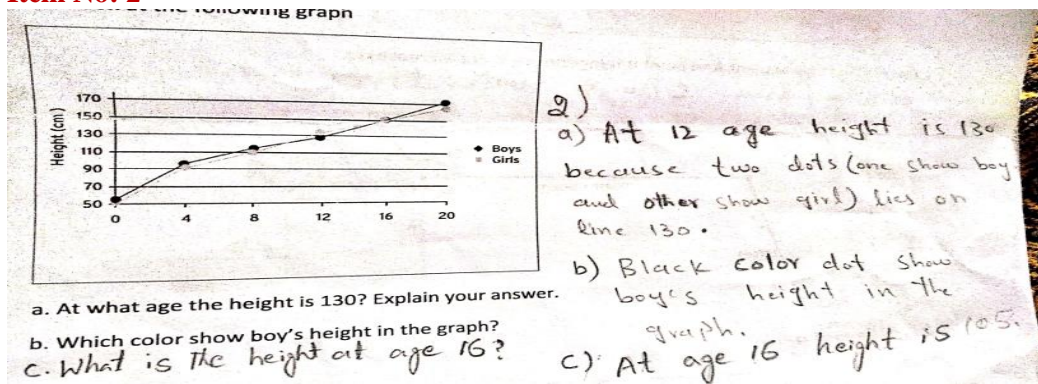 Item No: 2
following graph
Height (cm)
170
150
130
110
90
70
50
0 4 8 12 16 20
Boys
Girls
a. At what age the height is 130? Explain your answer.
b. Which color show boy's height in the graph?
c. What is the height at age 16?
2)
a) At 12 age height is 130
because two dots (one show boy
and other show girl) lies on
line 130.
b) Black color dot show
boy's height in the
graph.
c) At age 16 height is 105.